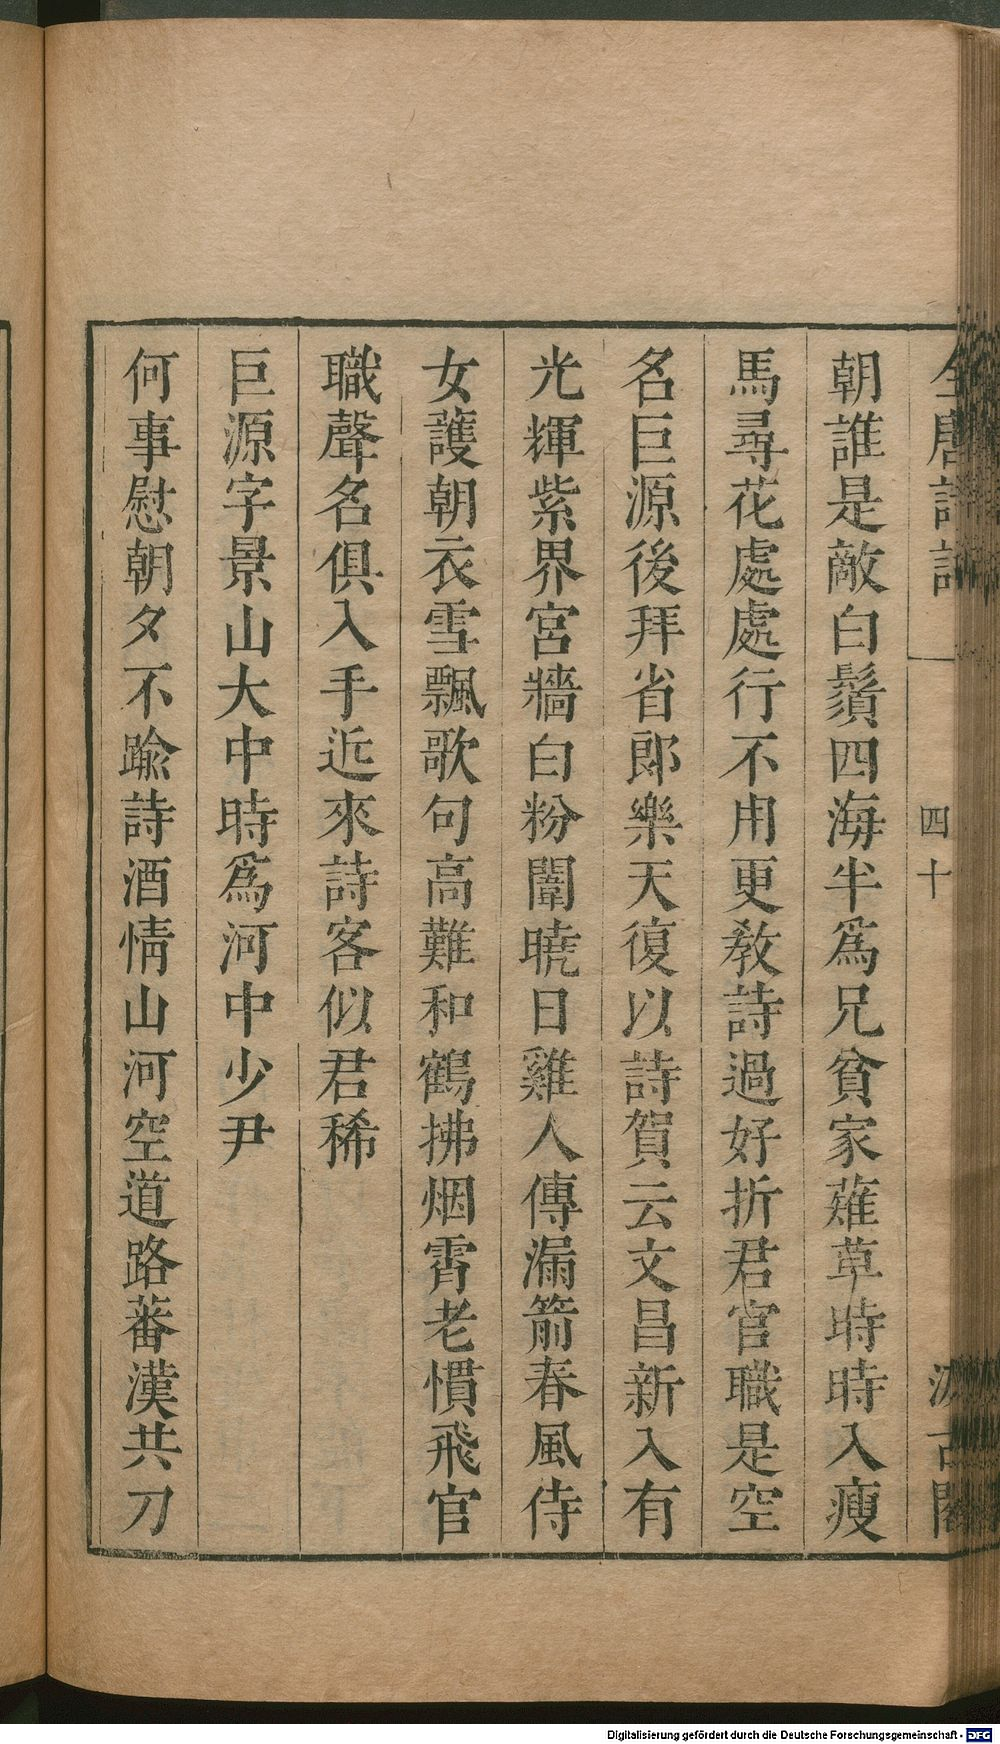 全唐詩話
四十
汲古閣
朝誰是敵白鬚四海半爲兄貧家薙草時時入瘦
馬尋花處處行不用更教詩過好折君官職是空
名巨源後拜省郎樂天復以詩賀云文昌新入有
光輝紫界宮牆白粉闈曉日雞人傳漏箭春風侍
女護朝衣雪飄歌句高難和鶴拂烟霄老慣飛官
職聲名俱入手近來詩客似君稀
巨源字景山大中時爲河中少尹
何事慰朝夕不踰詩酒情山河空道路蕃漢共刀
Digitalisierung gefördert durch die Deutsche Forschungsgemeinschaft - DFG